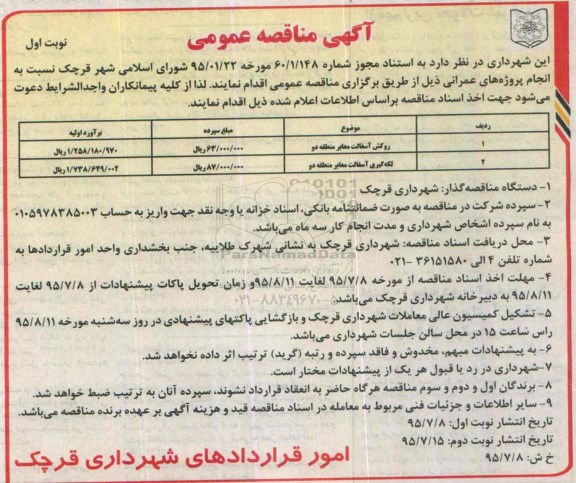 آگهی مناقصه عمومی
نوبت اول
این شهرداری در نظر دارد به استناد مجوز شماره ۶۰/۱/۱۴۸ مورخه ۹۵/۰۱/۲۲ شورای اسلامی شهر قرچک نسبت به
انجام پروژه‌های عمرانی ذیل از طریق برگزاری مناقصه عمومی اقدام نمایند. لذا از کلیه پیمانکاران واجدالشرایط دعوت
می‌شود جهت اخذ اسناد مناقصه براساس اطلاعات اعلام شده ذیل اقدام نمایند.
ردیف موضوع مبلغ سپرده برآورد اولیه
۱ روکش آسفالت معابر منطقه دو ۶۳/۰۰۰/۰۰۰ ریال ۱/۲۵۸/۱۸۰/۹۷۰ ریال
۲ لکه‌گیری آسفالت معابر منطقه دو ۸۷/۰۰۰/۰۰۰ ریال ۱/۷۳۸/۶۴۹/۰۰۲ ریال
۱- دستگاه مناقصه‌گذار: شهرداری قرچک
۲- سپرده شرکت در مناقصه به صورت ضمانتنامه بانکی، اسناد خزانه یا وجه نقد جهت واریز به حساب ۰۱۰۵۹۷۸۳۸۵۰۰۳
به نام سپرده اشخاص شهرداری و مدت انجام کار سه ماه می‌باشد.
۳- محل دریافت اسناد مناقصه: شهرداری قرچک به نشانی شهرک طلاییه، جنب بخشداری واحد امور قراردادها به
شماره تلفن ۴ الی ۳۶۱۵۱۵۸۰ -۰۲۱
۴- مهلت اخذ اسناد مناقصه از مورخه ۹۵/۷/۸ لغایت ۹۵/۸/۱۱و زمان تحویل پاکات پیشنهادات از ۹۵/۷/۸ لغایت
۹۵/۸/۱۱ به دبیرخانه شهرداری قرچک می‌باشد.
۵- تشکیل کمیسیون عالی معاملات شهرداری قرچک و بازگشایی پاکتهای پیشنهادی در روز سه‌شنبه مورخه ۹۵/۸/۱۱
راس ساعت ۱۵ در محل سالن جلسات شهرداری می‌باشد.
۶- به پیشنهادات مبهم، مخدوش و فاقد سپرده و رتبه (گرید) ترتیب اثر داده نخواهد شد.
۷-شهرداری در رد یا قبول هر یک از پیشنهادات مختار است.
۸- برندگان اول و دوم و سوم مناقصه هرگاه حاضر به انعقاد قرارداد نشوند، سپرده آنان به ترتیب ضبط خواهد شد.
۹- سایر اطلاعات و جزئیات فنی مربوط به معامله در اسناد مناقصه قید و هزینه آگهی بر عهده برنده مناقصه می‌باشد.
تاریخ انتشار نوبت اول: ۹۵/۷/۸
تاریخ انتشار نوبت دوم: ۹۵/۷/۱۵
خ ش: ۹۵/۷/۸
امور قراردادهای شهرداری قرچک
ParsNamadData
۰۲۱-۸۸۳۴۹۶۷۰-۵